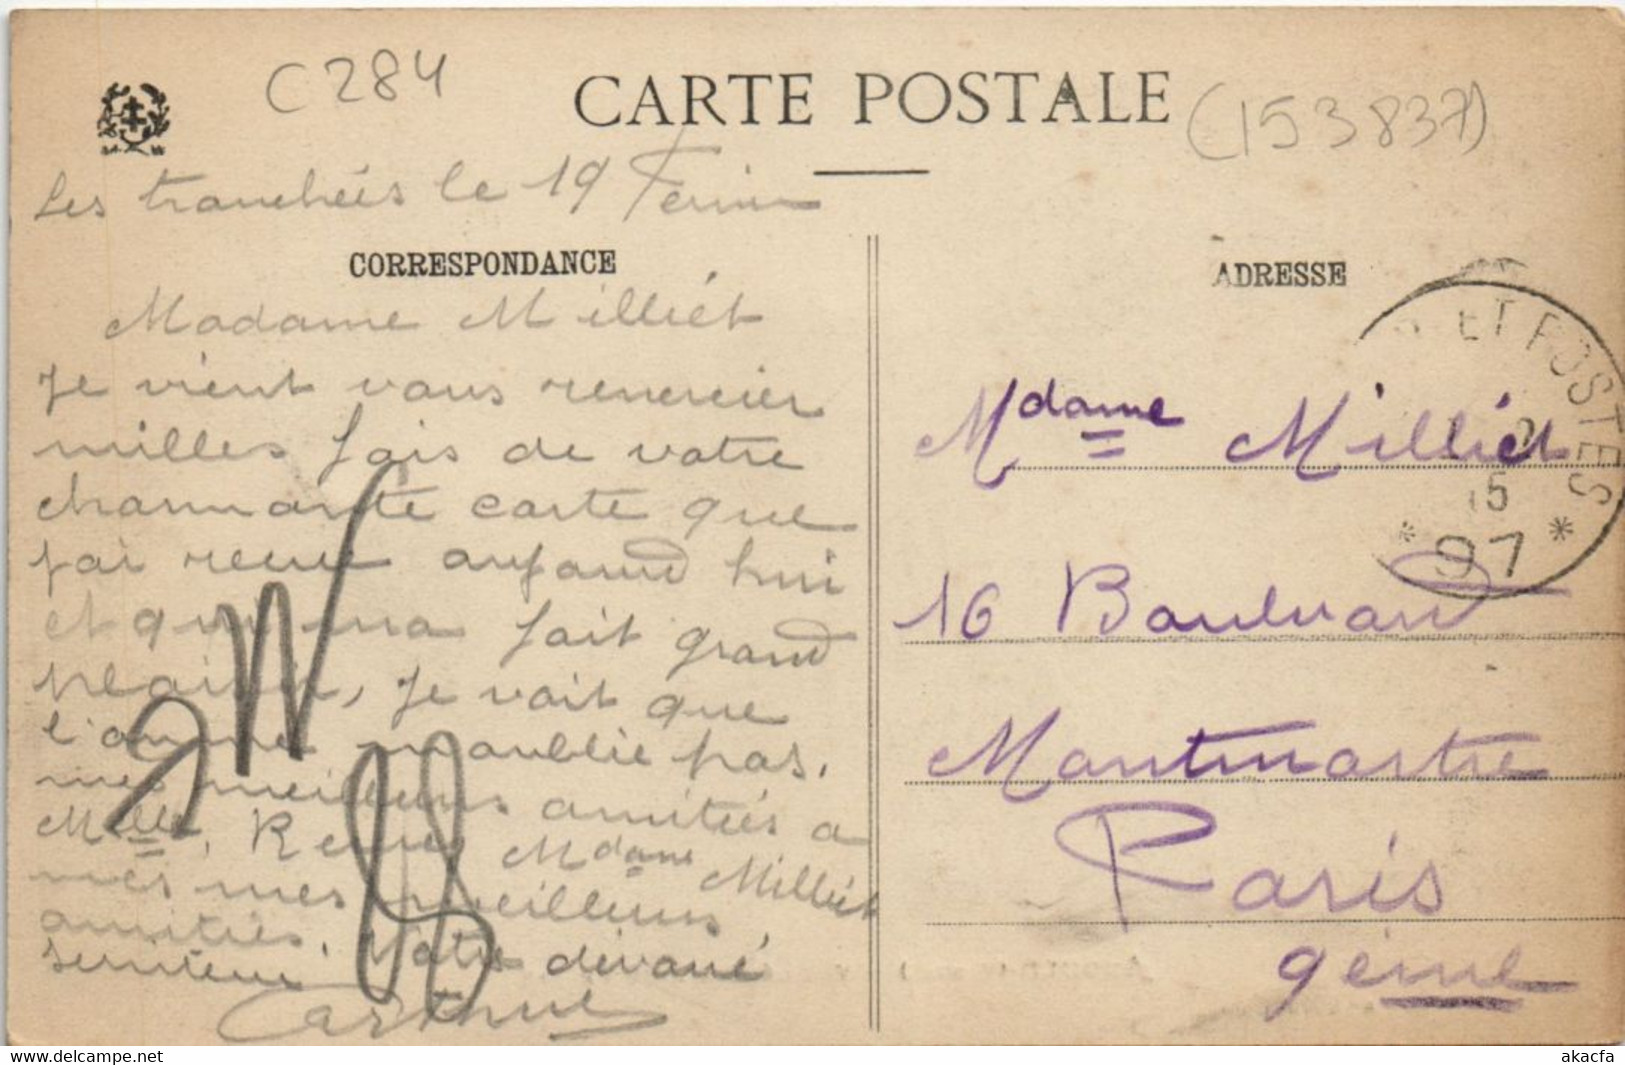 C 284
CARTE POSTALE
(153837)
Les tranchées le 19 Fevrier
CORRESPONDANCE
Madame Milliét
Je vient vous remercier
milles fois de votre
charmante carte que
jai recue aujourd hui
et qui ma fait grand
plaisir, Je voit que
l'on ne m'oublie pas.
mes meilleurs amitiés a
Melle, Renée, Mdame Milliét
mes meilleurs
amitiés. Votre dévoué
serviteur
Arthur
ADRESSE
ET POSTES
15
* 97 *
Mdame Milliét
16 Boulevard
Montmartre
Paris
9éme
akacfa